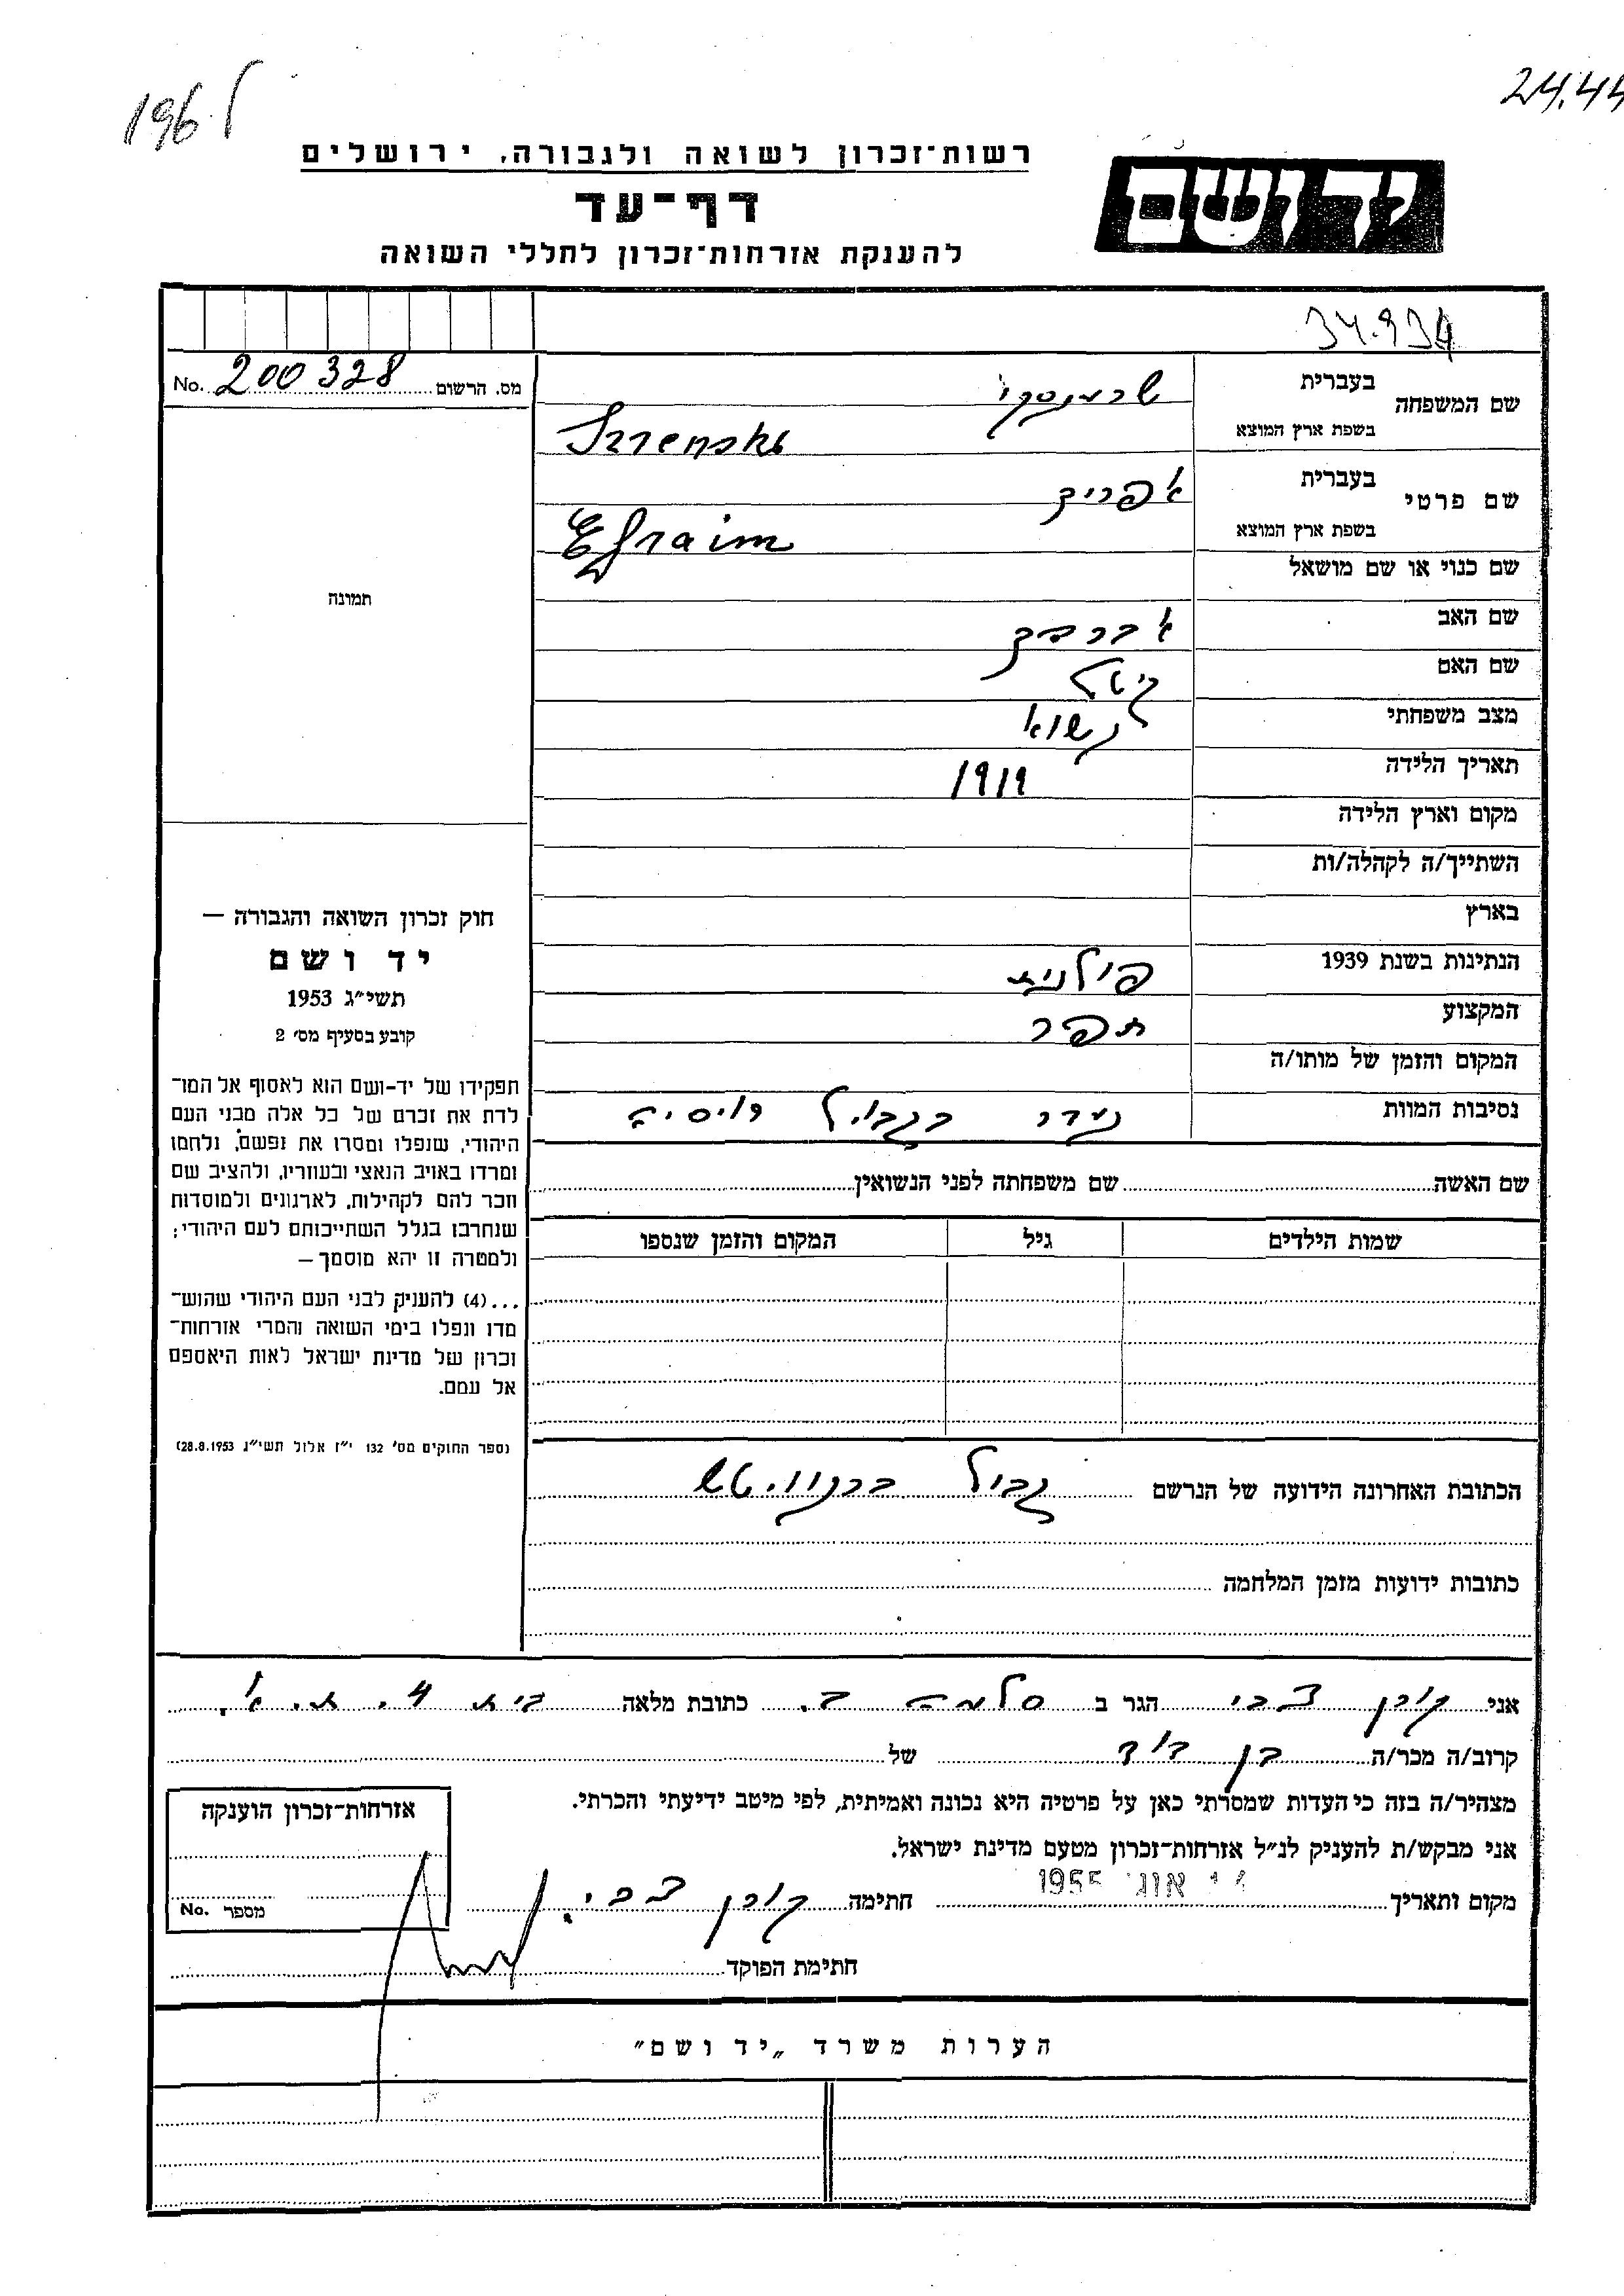 196.
24.44
רשות־זכרון לשואה ולגבורה, ירושלים
ידושם
דף־עד
להענקת אזרחות־זכרון לחללי השואה
34.934
מס. הרשום 200328 No.
שם המשפחה
בעברית שרמנסקי
בשפת ארץ המוצא
שם פרטי
בעברית אפרים
בשפת ארץ המוצא Efraim
שם כנוי או שם מושאל
שם האב אברהם
שם האם גיטל
מצב משפחתי נשוא
תאריך הלידה 1919
מקום וארץ הלידה
השתייך/ה לקהלה/ות
בארץ
הנתינות בשנת 1939 פולנית
המקצוע תפר
המקום והזמן של מותו/ה
נסיבות המוות בגבול רוסיה
תמונה
חוק זכרון השואה והגבורה —
יד ושם
תשי״ג 1953
קובע בסעיף מס׳ 2
תפקידו של יד-ושם הוא לאסוף אל המו־
לדת את זכרם של כל אלה מבני העם
היהודי, שנפלו ומסרו את נפשם, נלחמו
ומרדו באויב הנאצי ובעוזריו, ולהציב שם
וזכר להם לקהילות, לארגונים ולמוסדות
שנחרבו בגלל השתייכותם לעם היהודי;
ולמטרה זו יהא מוסמך —
...(4) להעניק לבני העם היהודי שהוש־
מדו ונפלו בימי השואה והמרי אזרחות־
זכרון של מדינת ישראל לאות היאספם
אל עמם.
(ספר החוקים מס׳ 132 י״ז אלול תשי״ג 28.8.1953)
שם האשה שם משפחתה לפני הנשואין
שמות הילדים גיל המקום והזמן שנספו
הכתובת האחרונה הידועה של הנרשם גבול
כתובות ידועות מזמן המלחמה
אני קורן צבי הגר ב סלמה ב. כתובת מלאה בית 4. ת. א.
קרוב/ה מכר/ה בן דוד של
מצהיר/ה בזה כי העדות שמסרתי כאן על פרטיה היא נכונה ואמיתית, לפי מיטב ידיעתי והכרתי.
אני מבקש/ת להעניק לנ״ל אזרחות־זכרון מטעם מדינת ישראל.
מקום ותאריך אוג 1955 חתימה קורן צבי.
חתימת הפוקד
אזרחות־זכרון הוענקה
מספר No.
הערות משרד „יד ושם״